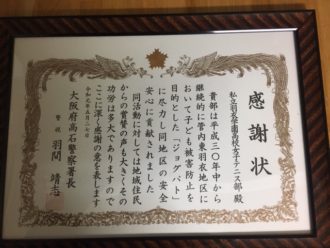 感謝状
私立羽衣学園高校女子テニス部 殿
貴部は平成三〇年中から
継続的に管内東羽衣地区に
おいて子ども被害防止を
目的とした「ジョグパト」
に尽力し同地区の安全
安心に貢献されました
同活動に対しては地域住民
からの賞賛の声も大きくその
功労は多大でありますので
ここに深く感謝の意を表します
令和元年五月二七日
大阪府高石警察署長
警視 羽間靖志